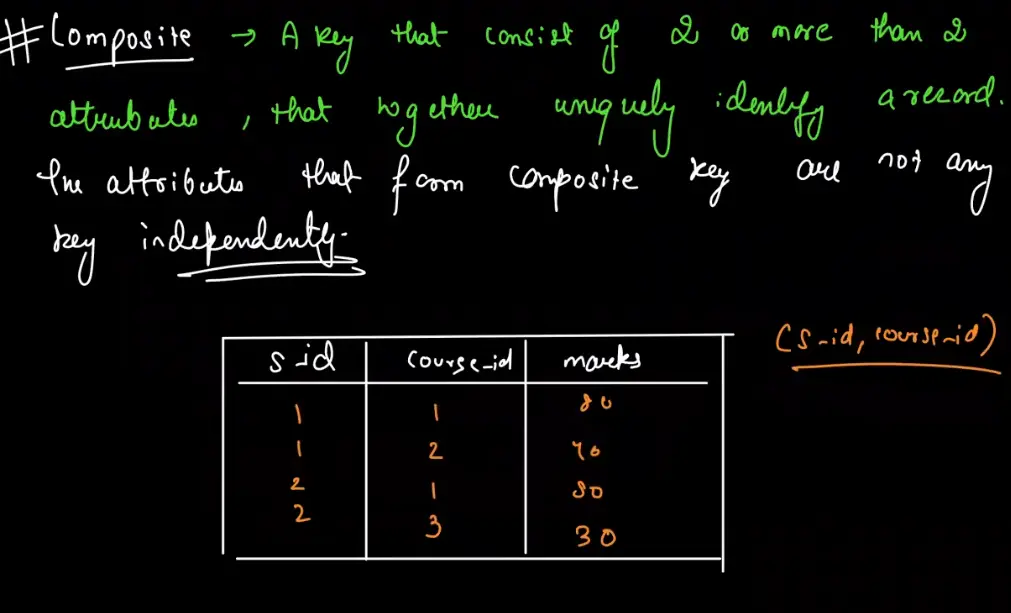 # Composite → A key that consist of 2 or more than 2
attributes, that together uniquely identify a record.
The attributes that form composite key are not any
key independently.
(s_id, course_id)
s_id course_id marks
1 1 80
1 2 70
2 1 80
2 3 30